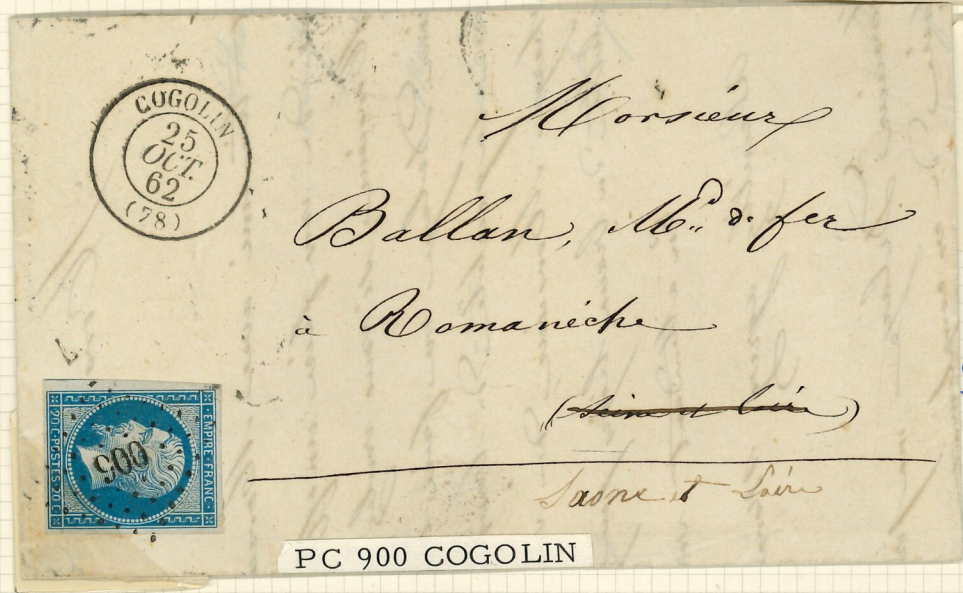 COGOLIN
25
OCT.
62
(78)
Monsieur
Ballan, Md. de fer
à Romanèche
(Seine et Loire)
Saone et Loire
EMPIRE·FRANC·
20·C·POSTES·20·C
900
PC 900 COGOLIN